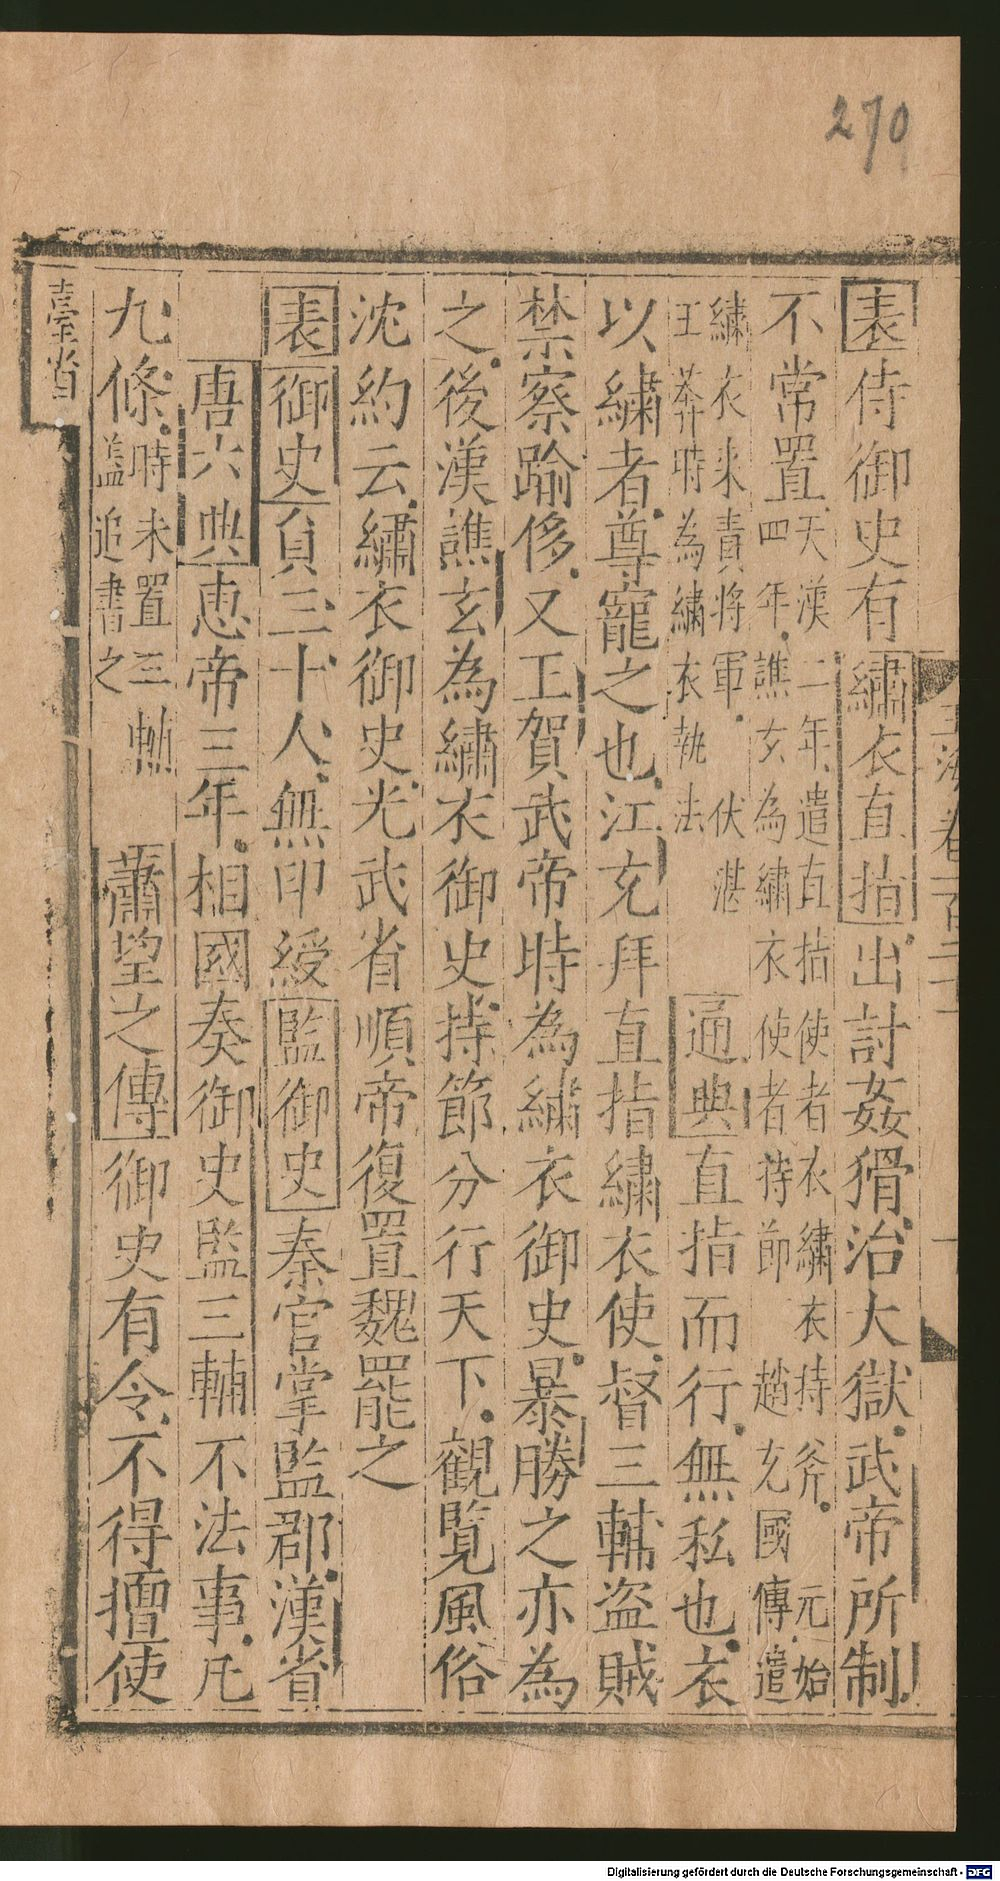 270
表侍御史有繡衣直指出討姦猾治大獄武帝所制
不常置天漢二年遣直指使者衣繡衣持斧元始
四年譙玄為繡衣使者持節趙充國傳遣
繡衣來責將軍伏湛
王莽時為繡衣執法通典直指而行無私也衣
以繡者尊寵之也江充拜直指繡衣使督三輔盜賊
禁察踰侈又王賀武帝時為繡衣御史暴勝之亦為
之後漢譙玄為繡衣御史持節分行天下觀覽風俗
沈約云繡衣御史光武省順帝復置魏罷之
表御史員三十人無印綬監御史秦官掌監郡漢省
唐六典惠帝三年相國奏御史監三輔不法事凡
九條時未置三輔
蓋追書之蕭望之傳御史有令不得擅使
臺省
玉海卷一百二十一
Digitalisierung gefördert durch die Deutsche Forschungsgemeinschaft - DFG